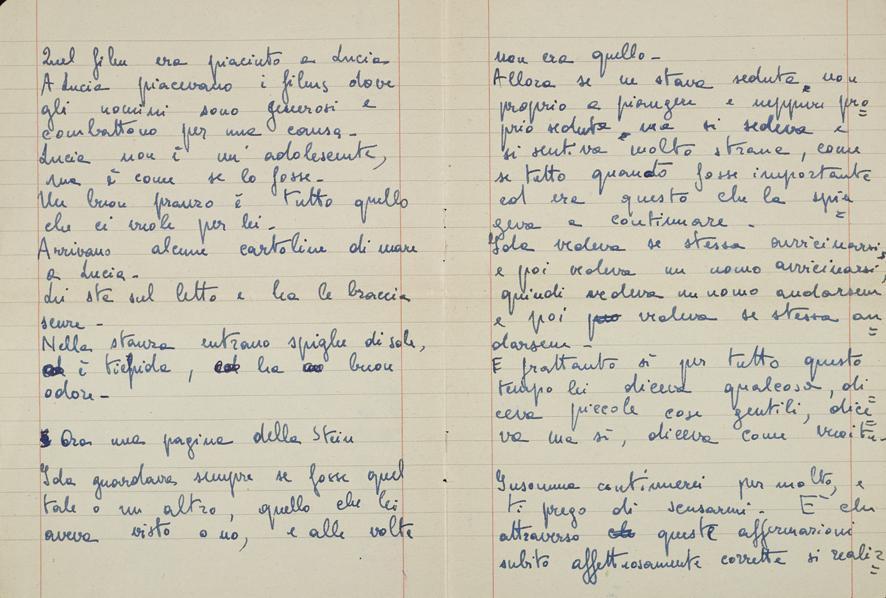 Quel film era piaciuto a Lucia
A Lucia piacevano i films dove
gli uomini sono generosi e
combattono per una causa -
Lucia non è un' adolescente,
ma è come se lo fosse -
Un buon pranzo è tutto quello
che ci vuole per lei -
Arrivano alcune cartoline di mare
a Lucia -
Lui sta sul letto e ha le braccia
scure -
Nella stanza entrano spighe di sole,
è tiepida, ha buon
odore -
Ora una pagina della Stein
Ida guardava sempre se fosse quel
tale o un altro, quello che lei
aveva visto o no, e alle volte
non era quello -
Allora se ne stava seduta, non
proprio a piangere e neppure pro
prio seduta, ma si sedeva e
si sentiva molto strana, come
se tutto quanto fosse importante
ed era questo che la spin
geva a continuare -
Ida vedeva se stessa avvicinarsi,
e poi vedeva un uomo avvicinarsi,
quindi vedeva un uomo andarsene
e poi vedeva se stessa an
darsene -
E frattanto sì per tutto questo
tempo lei diceva qualcosa, di
ceva piccole cose gentili, dice
va ma sì, diceva come
Insomma continuerei per molto, e
ti prego di scusarmi - È che
attraverso queste affermazioni
subito affettuosamente corrette si realiz